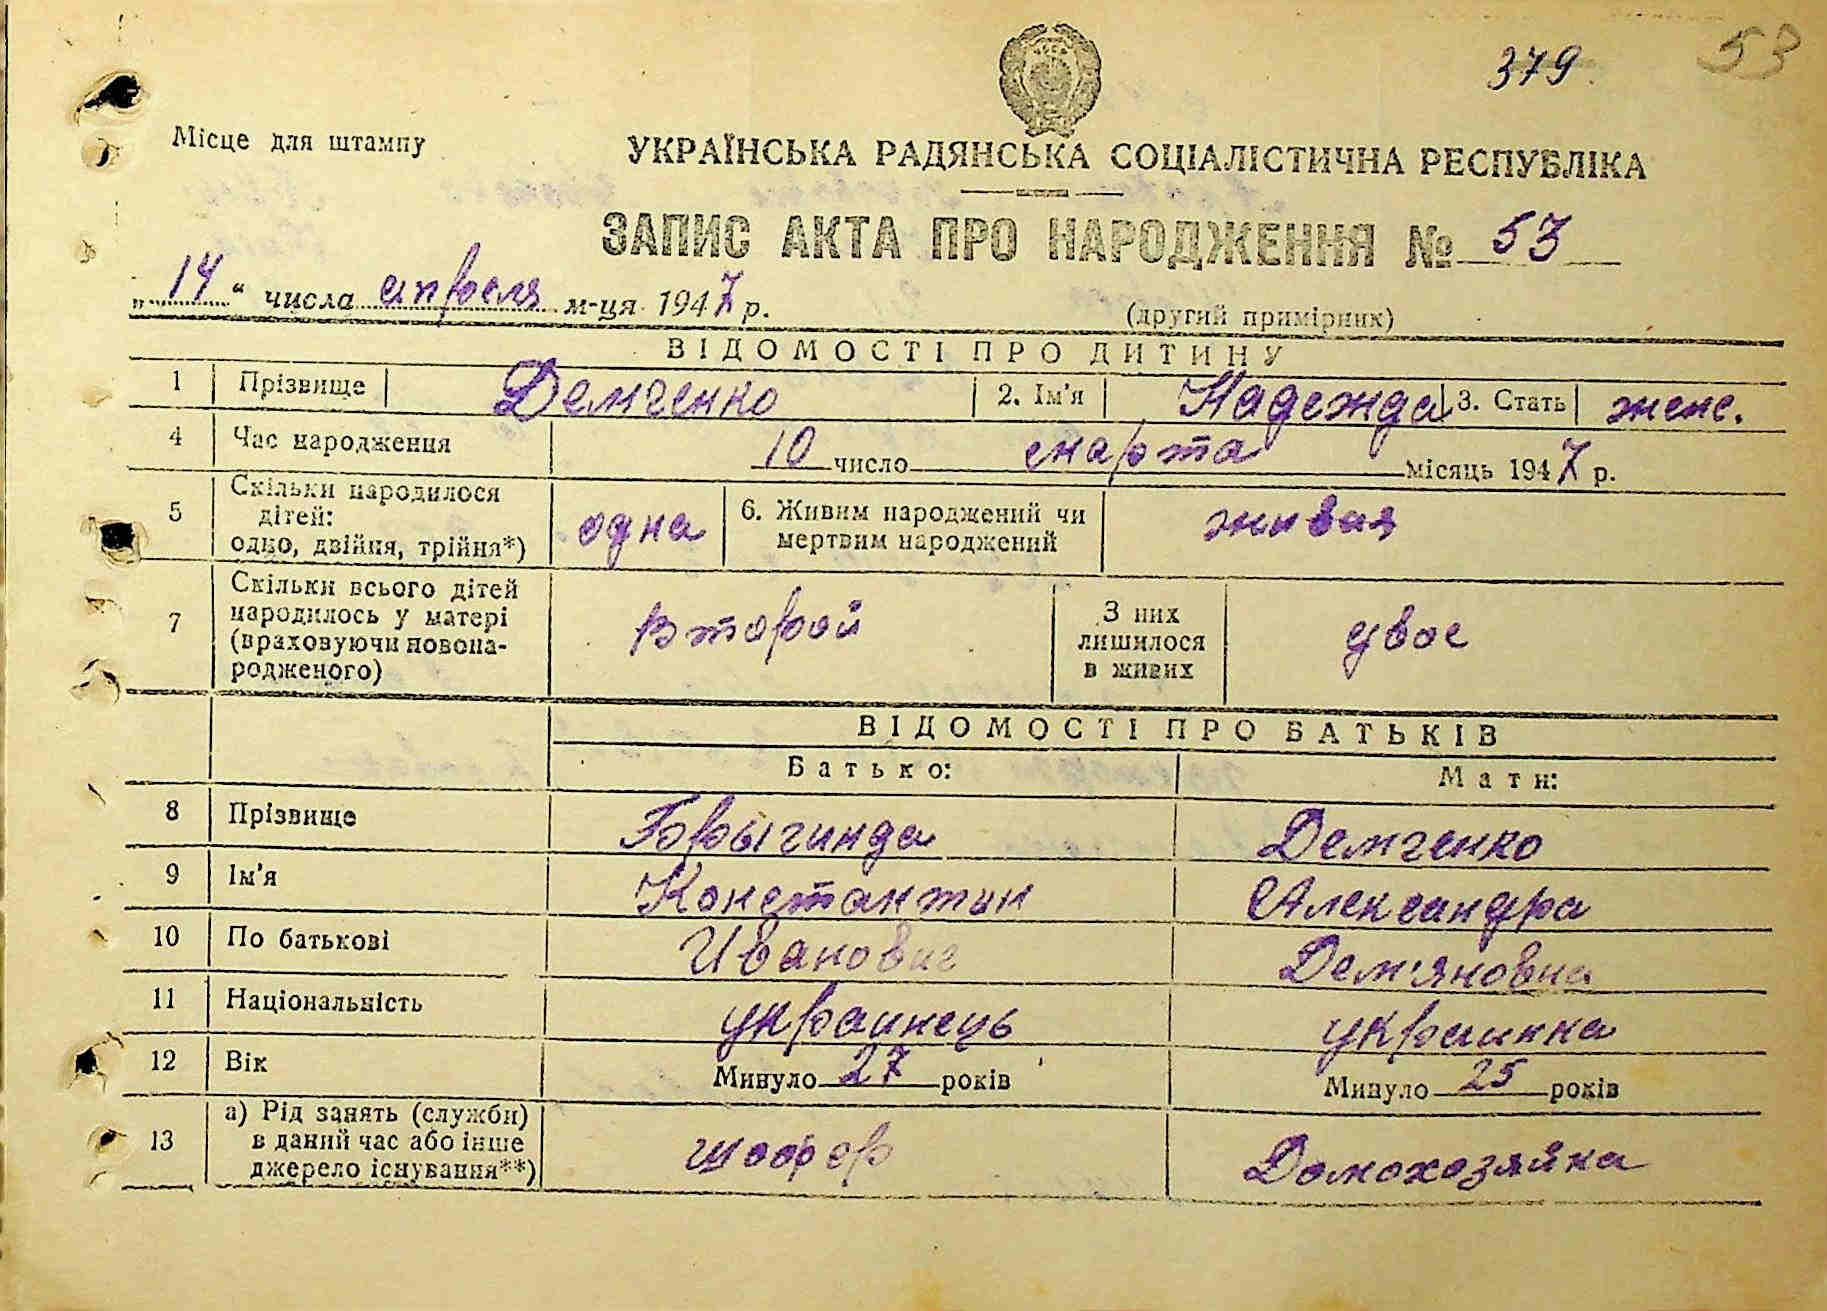 379 53
Місце для штампу
УКРАЇНСЬКА РАДЯНСЬКА СОЦІАЛІСТИЧНА РЕСПУБЛІКА
ЗАПИС АКТА ПРО НАРОДЖЕННЯ № 53
„14“ числа апреля м-ця 1947 р.
(другий примірник)
ВІДОМОСТІ ПРО ДИТИНУ
1 Прізвище Демченко 2. Ім'я Надежда 3. Стать женс.
4 Час народження 10 число марта місяць 1947 р.
5 Скільки народилося
дітей:
одно, двійня, трійня*) одна 6. Живим народжений чи
мертвим народжений живая
7 Скільки всього дітей
народилось у матері
(враховуючи новона-
родженого) второй З них
лишилося
в живих двое
ВІДОМОСТІ ПРО БАТЬКІВ
Батько: Мати:
8 Прізвище Демченко
9 Ім'я Константин Александра
10 По батькові Иванович Дем'яновна
11 Національність украинець украинка
12 Вік Минуло 27 років Минуло 25 років
13 а) Рід занять (служби)
в даний час або інше
джерело існування**) шофер Домохозяйка